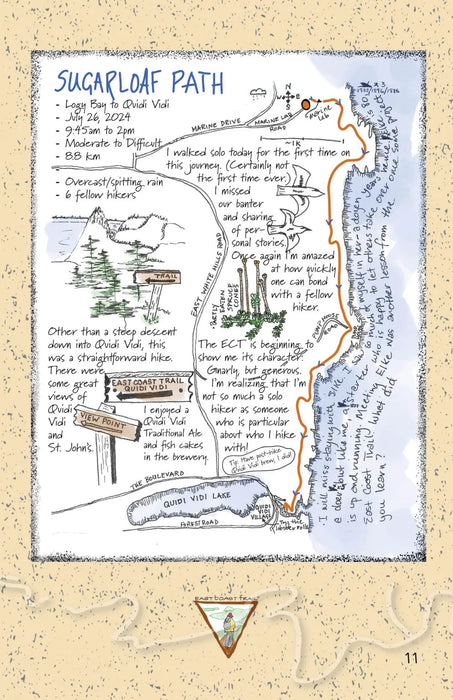 SUGARLOAF PATH
- Logy Bay to Quidi Vidi
- July 26, 2024
- 9:45am to 2pm
- Moderate to Difficult
- 8.8 km
- Overcast/spitting rain
- 6 fellow hikers
N
W
E
S
MARINE DRIVE
MARINE LAB
ROAD
Marine
Lab
~1K
I walked solo today for the first time on
this journey. (Certainly not
the first time ever.)
I missed
our banter
and sharing
of per-
sonal stories.
Once again I'm amazed
at how quickly
one can bond
with a fellow
hiker.
EAST WHITE HILLS ROAD
TRAIL
EATEN
SPRUCE
CONES
Other than a steep descent
down into Quidi Vidi, this
was a straightforward hike.
There were
some great
views of
Quidi
Vidi
and
St. John's.
EAST COAST TRAIL
QUIDI VIDI
VIEW POINT
I enjoyed a
Quidi Vidi
Traditional Ale
and fish cakes
in the brewery.
The ECT is beginning to
show me its character.
Gnarly, but generous.
I'm realizing that I'm
not so much a solo
hiker as someone
who is particular
about who I hike
with!
Tip: Have post-hike
Quidi Vidi brew, I did!
THE BOULEVARD
QUIDI VIDI LAKE
FOREST ROAD
QUIDI
VIDI
VILLAGE
Try the
lobster rolls
I will miss staying with Elke. I
myself in her - a dozen years
a dear, but like me, a
so much of
who is happy to let others take over once some
is up and running. Meeting Elke was another lesson from the
East Coast Trail. What did
you learn?
EAST COAST TRAIL
11